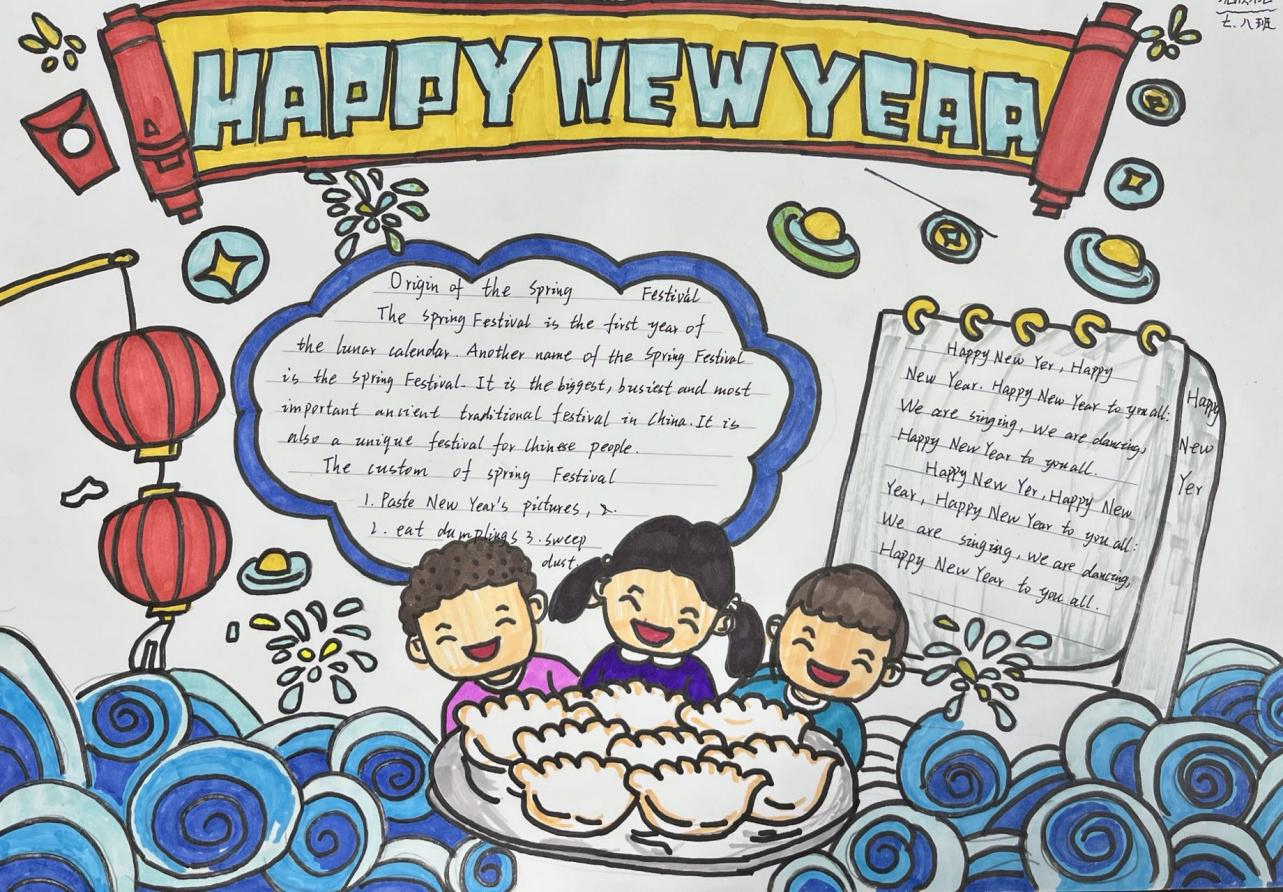 七.八班
HAPPY NEW YEAR
Origin of the Spring Festival
The Spring Festival is the first year of
the lunar calendar. Another name of the Spring Festival
is the spring Festival. It is the biggest, busiest and most
important ancient traditional festival in China. It is
also a unique festival for Chinese people.
The custom of spring Festival
1. Paste New Year's pictures, 2.
2. eat dumplings 3. sweep
dust.
Happy New Yer, Happy
New Year. Happy New Year to you all:
We are singing, we are dancing,
Happy New Year to you all.
Happy New Yer, Happy New
Year, Happy New Year to you all:
We are singing, we are dancing,
Happy New Year to you all.
Happy
New
Yer